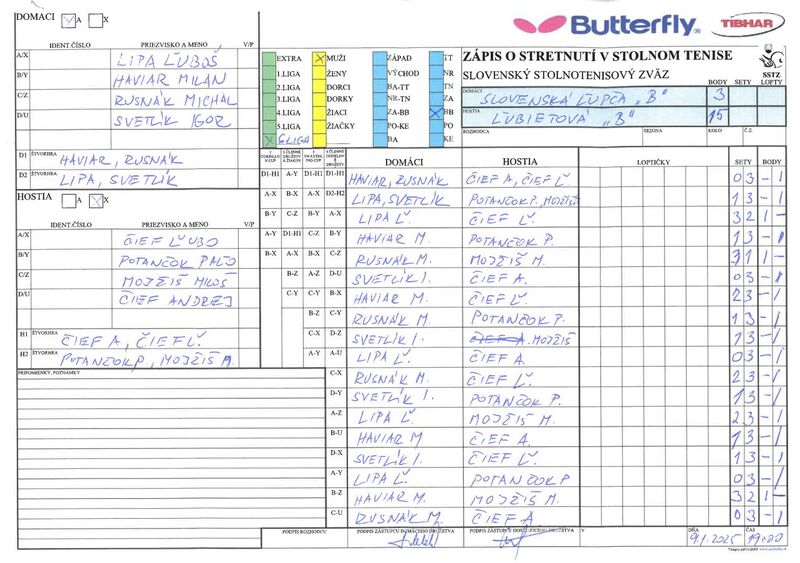 DOMÁCI A X
Butterfly
TIBHAR
IDENT.ČÍSLO PRIEZVISKO A MENO V/P
A/X LIPA ĽUBOŠ
B/Y HAVIAR MILAN
C/Z RUSNÁK MICHAL
D/U SVETLÍK IGOR
D1 ŠTVORHRA HAVIAR, RUSNÁK
D2 ŠTVORHRA LIPA, SVETLÍK
HOSTIA A X
IDENT.ČÍSLO PRIEZVISKO A MENO V/P
A/X ČIEF ĽUBO
B/Y POTANČOK PAĽO
C/Z MOJŽIŠ MILOŠ
D/U ČIEF ANDREJ
H1 ŠTVORHRA ČIEF A, ČIEF Ľ.
H2 ŠTVORHRA POTANČOK P, MOJŽIŠ M.
PRIPOMIENKY, POZNÁMKY
EXTRA MUŽI ZÁPAD TT
1.LIGA ŽENY VÝCHOD NR
2.LIGA DORCI BA-TT TN
3.LIGA DORKY NR-TN ZA
4.LIGA ŽIACI ZA-BB BB
5.LIGA ŽIAČKY PO-KE PO
6 LIGA BA KE
ZÁPIS O STRETNUTÍ V STOLNOM TENISE
SLOVENSKÝ STOLNOTENISOVÝ ZVÄZ
SSTZ
BODY SETY LOPTY
DOMÁCI SLOVENSKÁ ĽUPČA "B" 3
HOSTIA ĽUBIETOVÁ "B" 15
ROZHODCA SEZÓNA KOLO Č.Z.
DOMÁCI HOSTIA LOPTIČKY SETY BODY
D1-H1 A-Y D1-H1 D1-H1 HAVIAR, RUSNÁK ČIEF A, ČIEF Ľ. 0 3 - 1
A-X B-X A-X D2-H2 LIPA, SVETLÍK POTANČOK P. MOJŽIŠ 1 3 - 1
B-Y C-Z B-Y A-X LIPA Ľ. ČIEF Ľ. 3 2 1 -
A-Y D1-H1 C-Z B-Y HAVIAR M. POTANČOK P. 1 3 - 1
B-X A-X A-Y C-Z RUSNÁK M. MOJŽIŠ M. 3 1 1 -
B-Z A-Z D-U SVETLÍK I. ČIEF A. 0 3 - 1
C-Y C-Y B-X HAVIAR M. ČIEF Ľ. 2 3 - 1
B-Z C-Y RUSNÁK M. POTANČOK P. 1 3 - 1
C-X D-Z SVETLÍK I. MOJŽIŠ 1 3 - 1
A-Y A-U LIPA Ľ. ČIEF A. 0 3 - 1
C-X RUSNÁK M. ČIEF Ľ. 2 3 - 1
D-Y SVETLÍK I. POTANČOK P. 1 3 - 1
A-Z LIPA Ľ. MOJŽIŠ M. 2 3 - 1
B-U HAVIAR M ČIEF A. 1 3 - 1
D-X SVETLÍK I. ČIEF Ľ. 1 3 - 1
A-Y LIPA Ľ. POTANČOK P 0 3 - 1
B-Z HAVIAR M. MOJŽIŠ M. 3 2 1 -
C-U RUSNÁK M. ČIEF A 0 3 - 1
PODPIS ROZHODCU PODPIS ZÁSTUPCU DOMÁCEHO DRUŽSTVA PODPIS ZÁSTUPCU HOSŤUJÚCEHO DRUŽSTVA V DŇA ČAS
9.1.2025 19:00